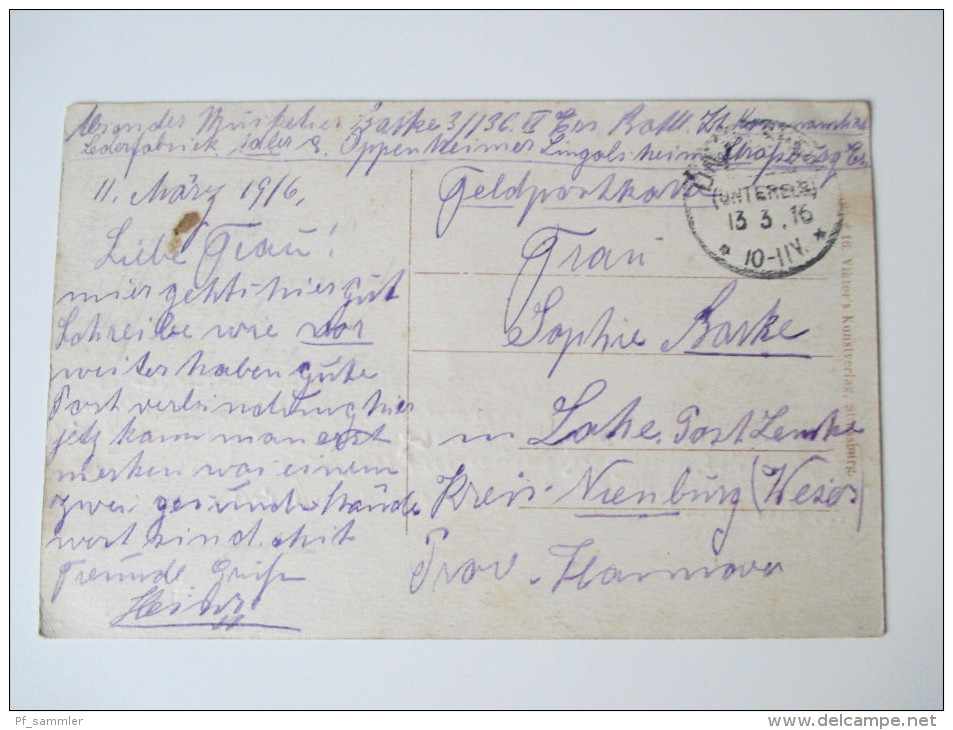 Absender Musketier Baske 3/136. II Ers. Batl.
Lederfabrick Adler & Oppenheimer Lingolsheim Straßburg Els
11. März 1916,
Feldpostkarte
(UNTERELS)
13 3.16
* 10-11V. *
Liebe Frau!
mier gehts hier gut
Schreibe wie vor
weiter haben gute
Post verbindung hier
jetz kann man erst
merken was einem
zwei gesunde Hände
wert sind. Mit
Freundl. Grüßen
Heinr.
Frau
Sophie Baske
in Lohe, Post Lemke
Kreis Nienburg (Weser)
Prov. Hannover
16. Viktor's Kunstverlag, Strassburg
Pf_sammler
www.delcampe.net